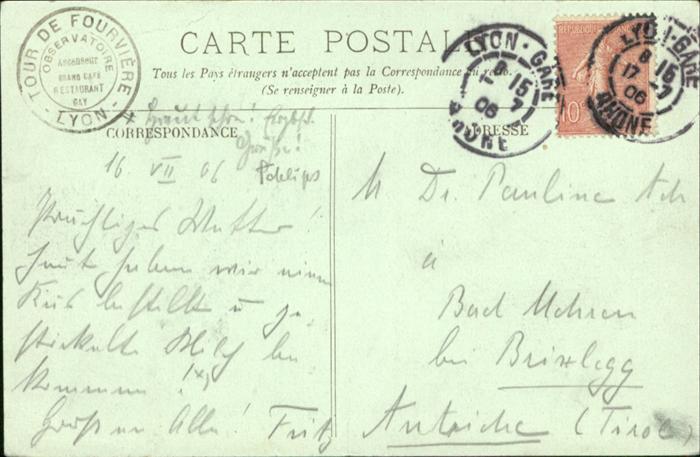 TOUR DE FOURVIÈRE
OBSERVATOIRE
Ascenseur
GRAND CAFÉ
RESTAURANT
GAY
LYON
CARTE POSTALE
Tous les Pays étrangers n'acceptent pas la Correspondance au recto.
(Se renseigner à la Poste).
RÉPUBLIQUE FRANÇAISE
10
LYON-GARE
8 15
17 7
06
RHONE
LYON-GARE
8 15
7
06
RHONE
CORRESPONDANCE
ADRESSE
Grüße!
16 VII 06
Prächtiges Wetter!
Heut haben wir einen
bestellt u. ge-
Milch be
kommen!
Gruß an Alle! Fritz
M Dr. Pauline
à
Bad Mehren
bei Brixlegg
Autriche (Tirol)